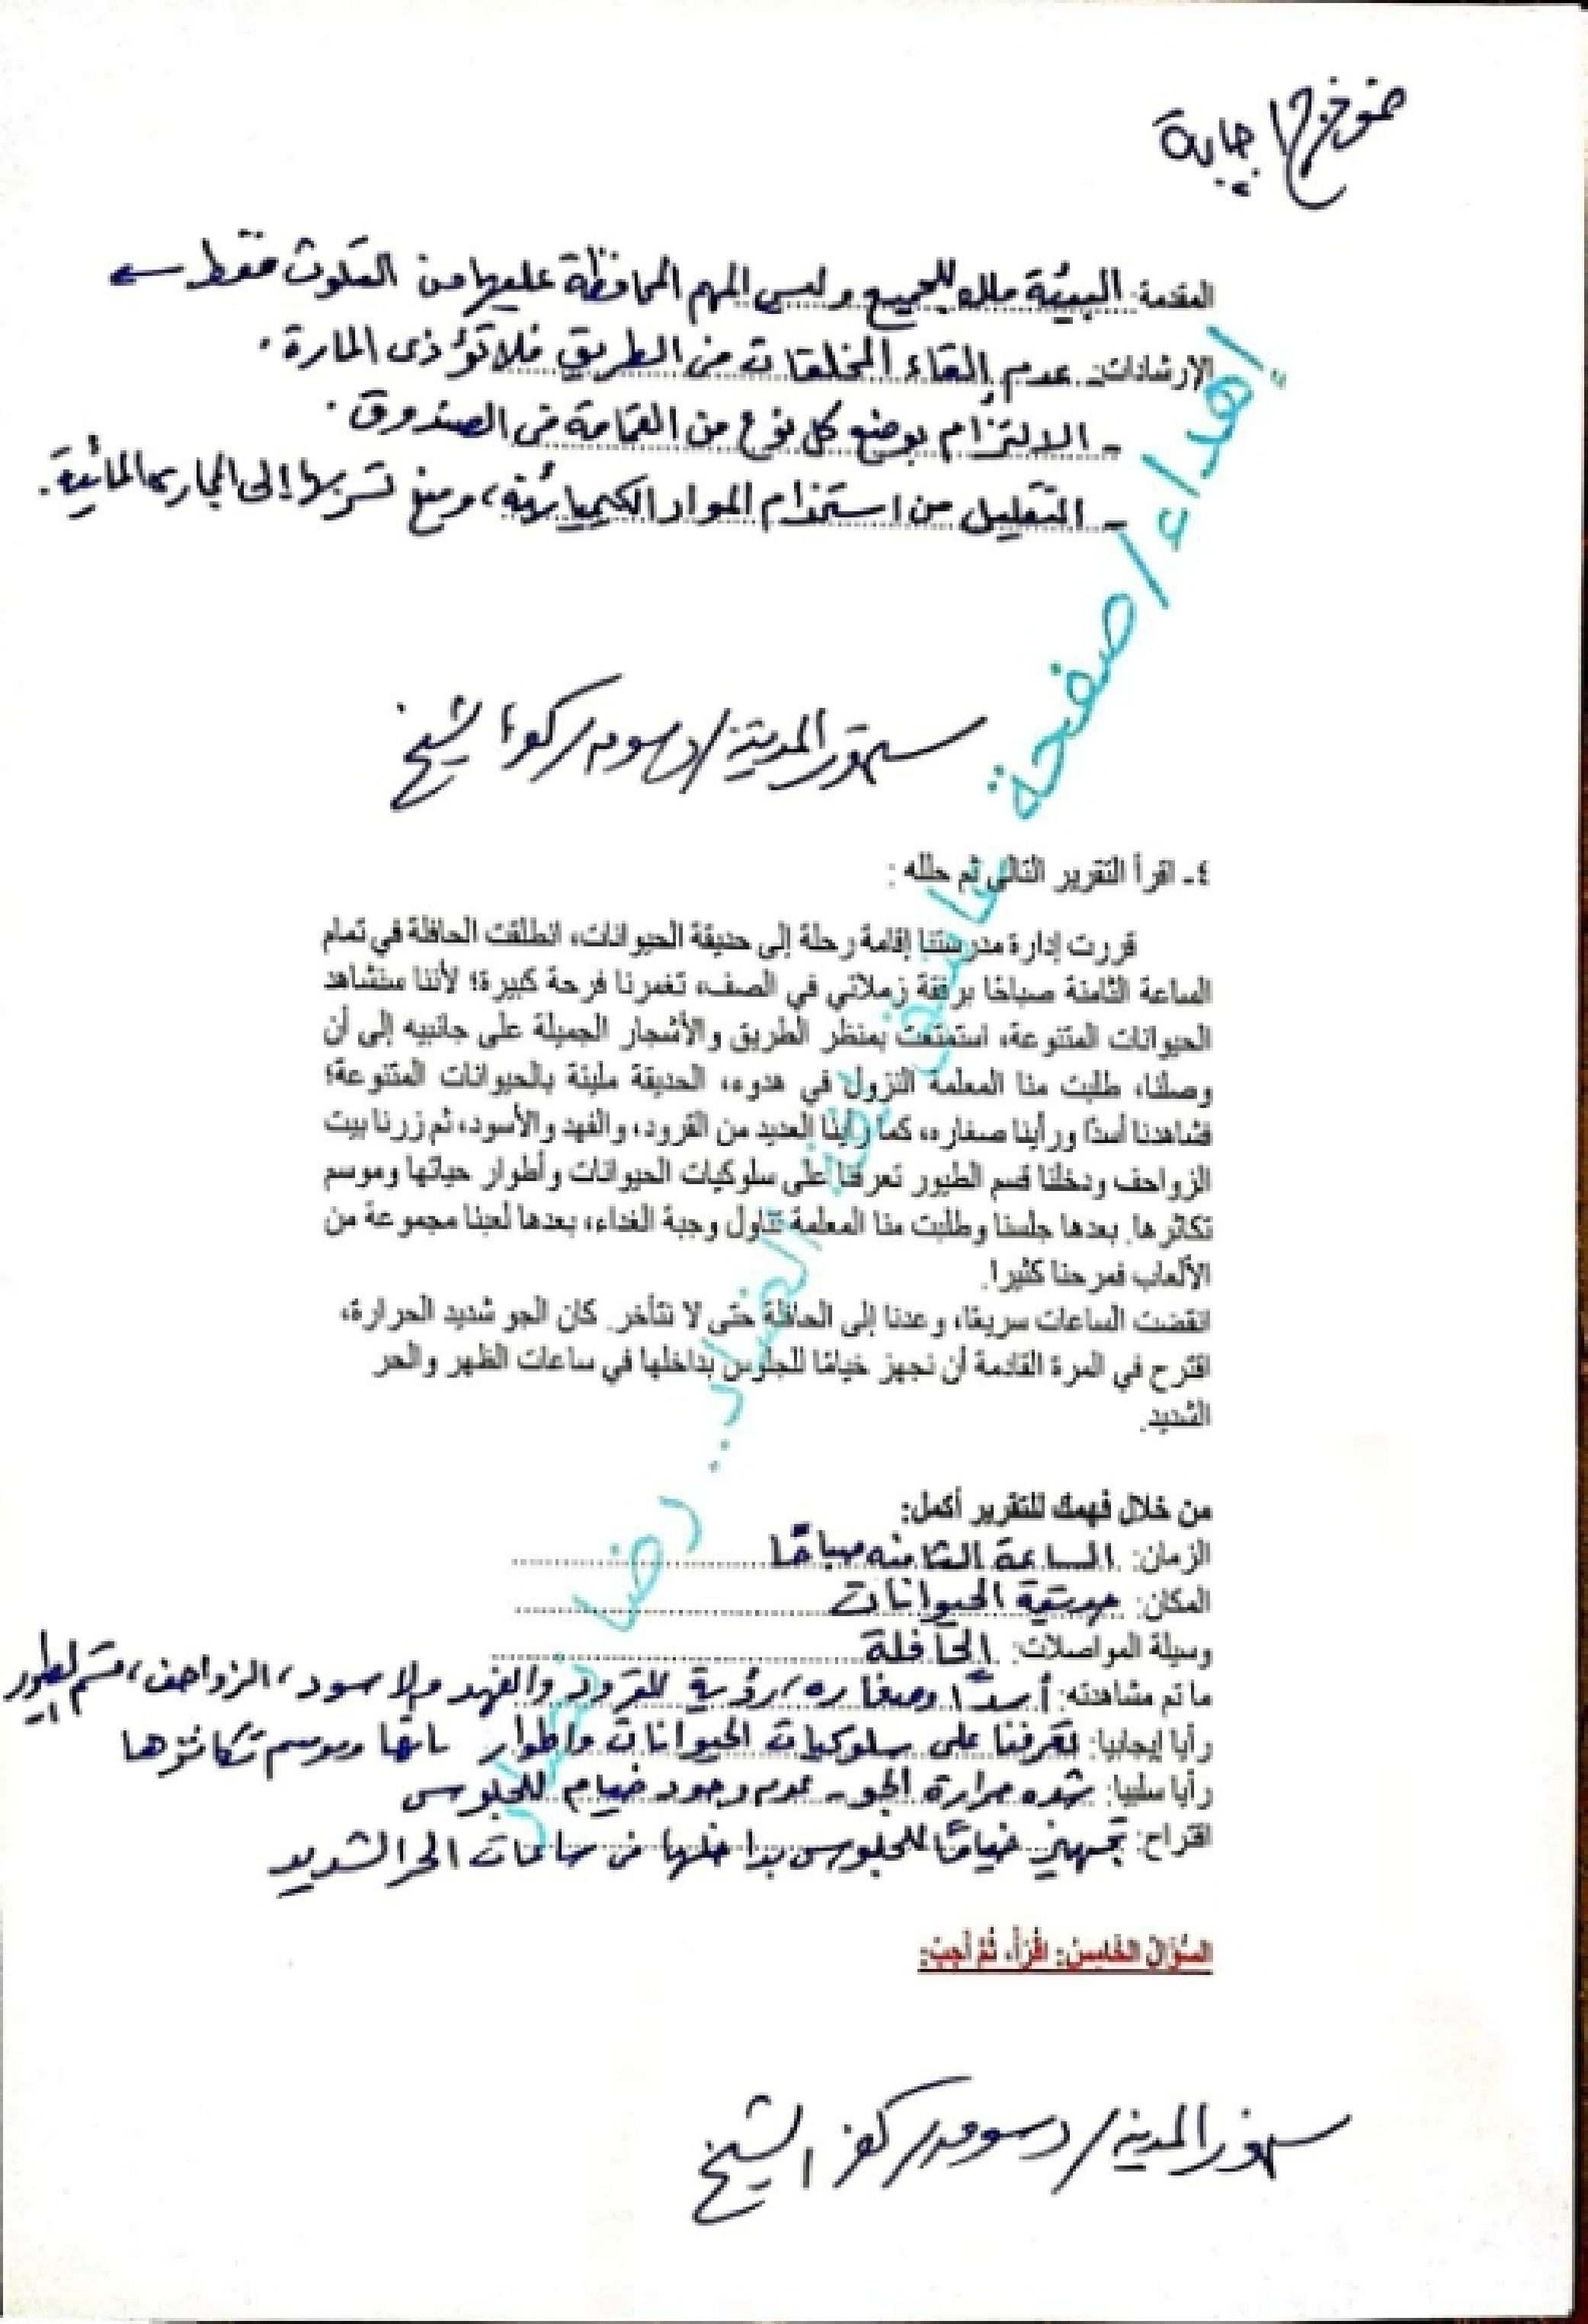 نموذج إجابة
المقدمة: البيئة ملك للجميع وليس المهم المحافظة عليها من التلوث فقط
الإرشادات: عدم إلقاء المخلفات في الطريق فلا تؤذى المارة.
ـ الالتزام بوضع كل نوع من القمامة فى الصندوق.
ـ التقليل من استخدام المواد الكيميائية، ومنع تسربها إلى المجارى المائية.
إهداء / صفحة عاشق لغة الضاد .. رضا
سنهور المدينة / دسوق / كفر الشيخ
٤ـ اقرأ التقرير التالي ثم حلله :
قررت إدارة مدرستنا إقامة رحلة إلى حديقة الحيوانات، انطلقت الحافلة في تمام
الساعة الثامنة صباحًا برفقة زملائي في الصف، تغمرنا فرحة كبيرة؛ لأننا سنشاهد
الحيوانات المتنوعة، استمتعت بمنظر الطريق والأشجار الجميلة على جانبيه إلى أن
وصلنا، طلبت منا المعلمة النزول في هدوء، الحديقة مليئة بالحيوانات المتنوعة؛
فشاهدنا أسدًا ورأينا صغاره، كما رأينا العديد من القرود، والفهد والأسود، ثم زرنا بيت
الزواحف ودخلنا قسم الطيور تعرفنا على سلوكيات الحيوانات وأطوار حياتها وموسم
تكاثرها. بعدها جلسنا وطلبت منا المعلمة تناول وجبة الغداء، بعدها لعبنا مجموعة من
الألعاب فمرحنا كثيرا.
انقضت الساعات سريعًا، وعدنا إلى الحافلة حتى لا نتأخر. كان الجو شديد الحرارة،
اقترح في المرة القادمة أن نجهز خيامًا للجلوس بداخلها في ساعات الظهر والحر
الشديد.
من خلال فهمك للتقرير أكمل:
الزمان: الساعة الثامنه صباحًا
المكان: حديقة الحيوانات
وسيلة المواصلات: الحافلة
ما تم مشاهدته: أسدًا وصغاره، رؤية القرود والفهد والاسود، الزواحف، قسم الطيور
رأيا إيجابيا: تعرفنا على سلوكيات الحيوانات واطوار ـاتها وموسم تكاثرها
رأيا سلبيا: شده حرارة الجو ـ عدم وجود خيام للجلوس
اقتراح: تجهيز خيامًا للجلوس بداخلها فى ساعات الحر الشديد
السؤال الخامس: اقرأ، ثم أجب:
سنهور المدينة / دسوق / كفر الشيخ